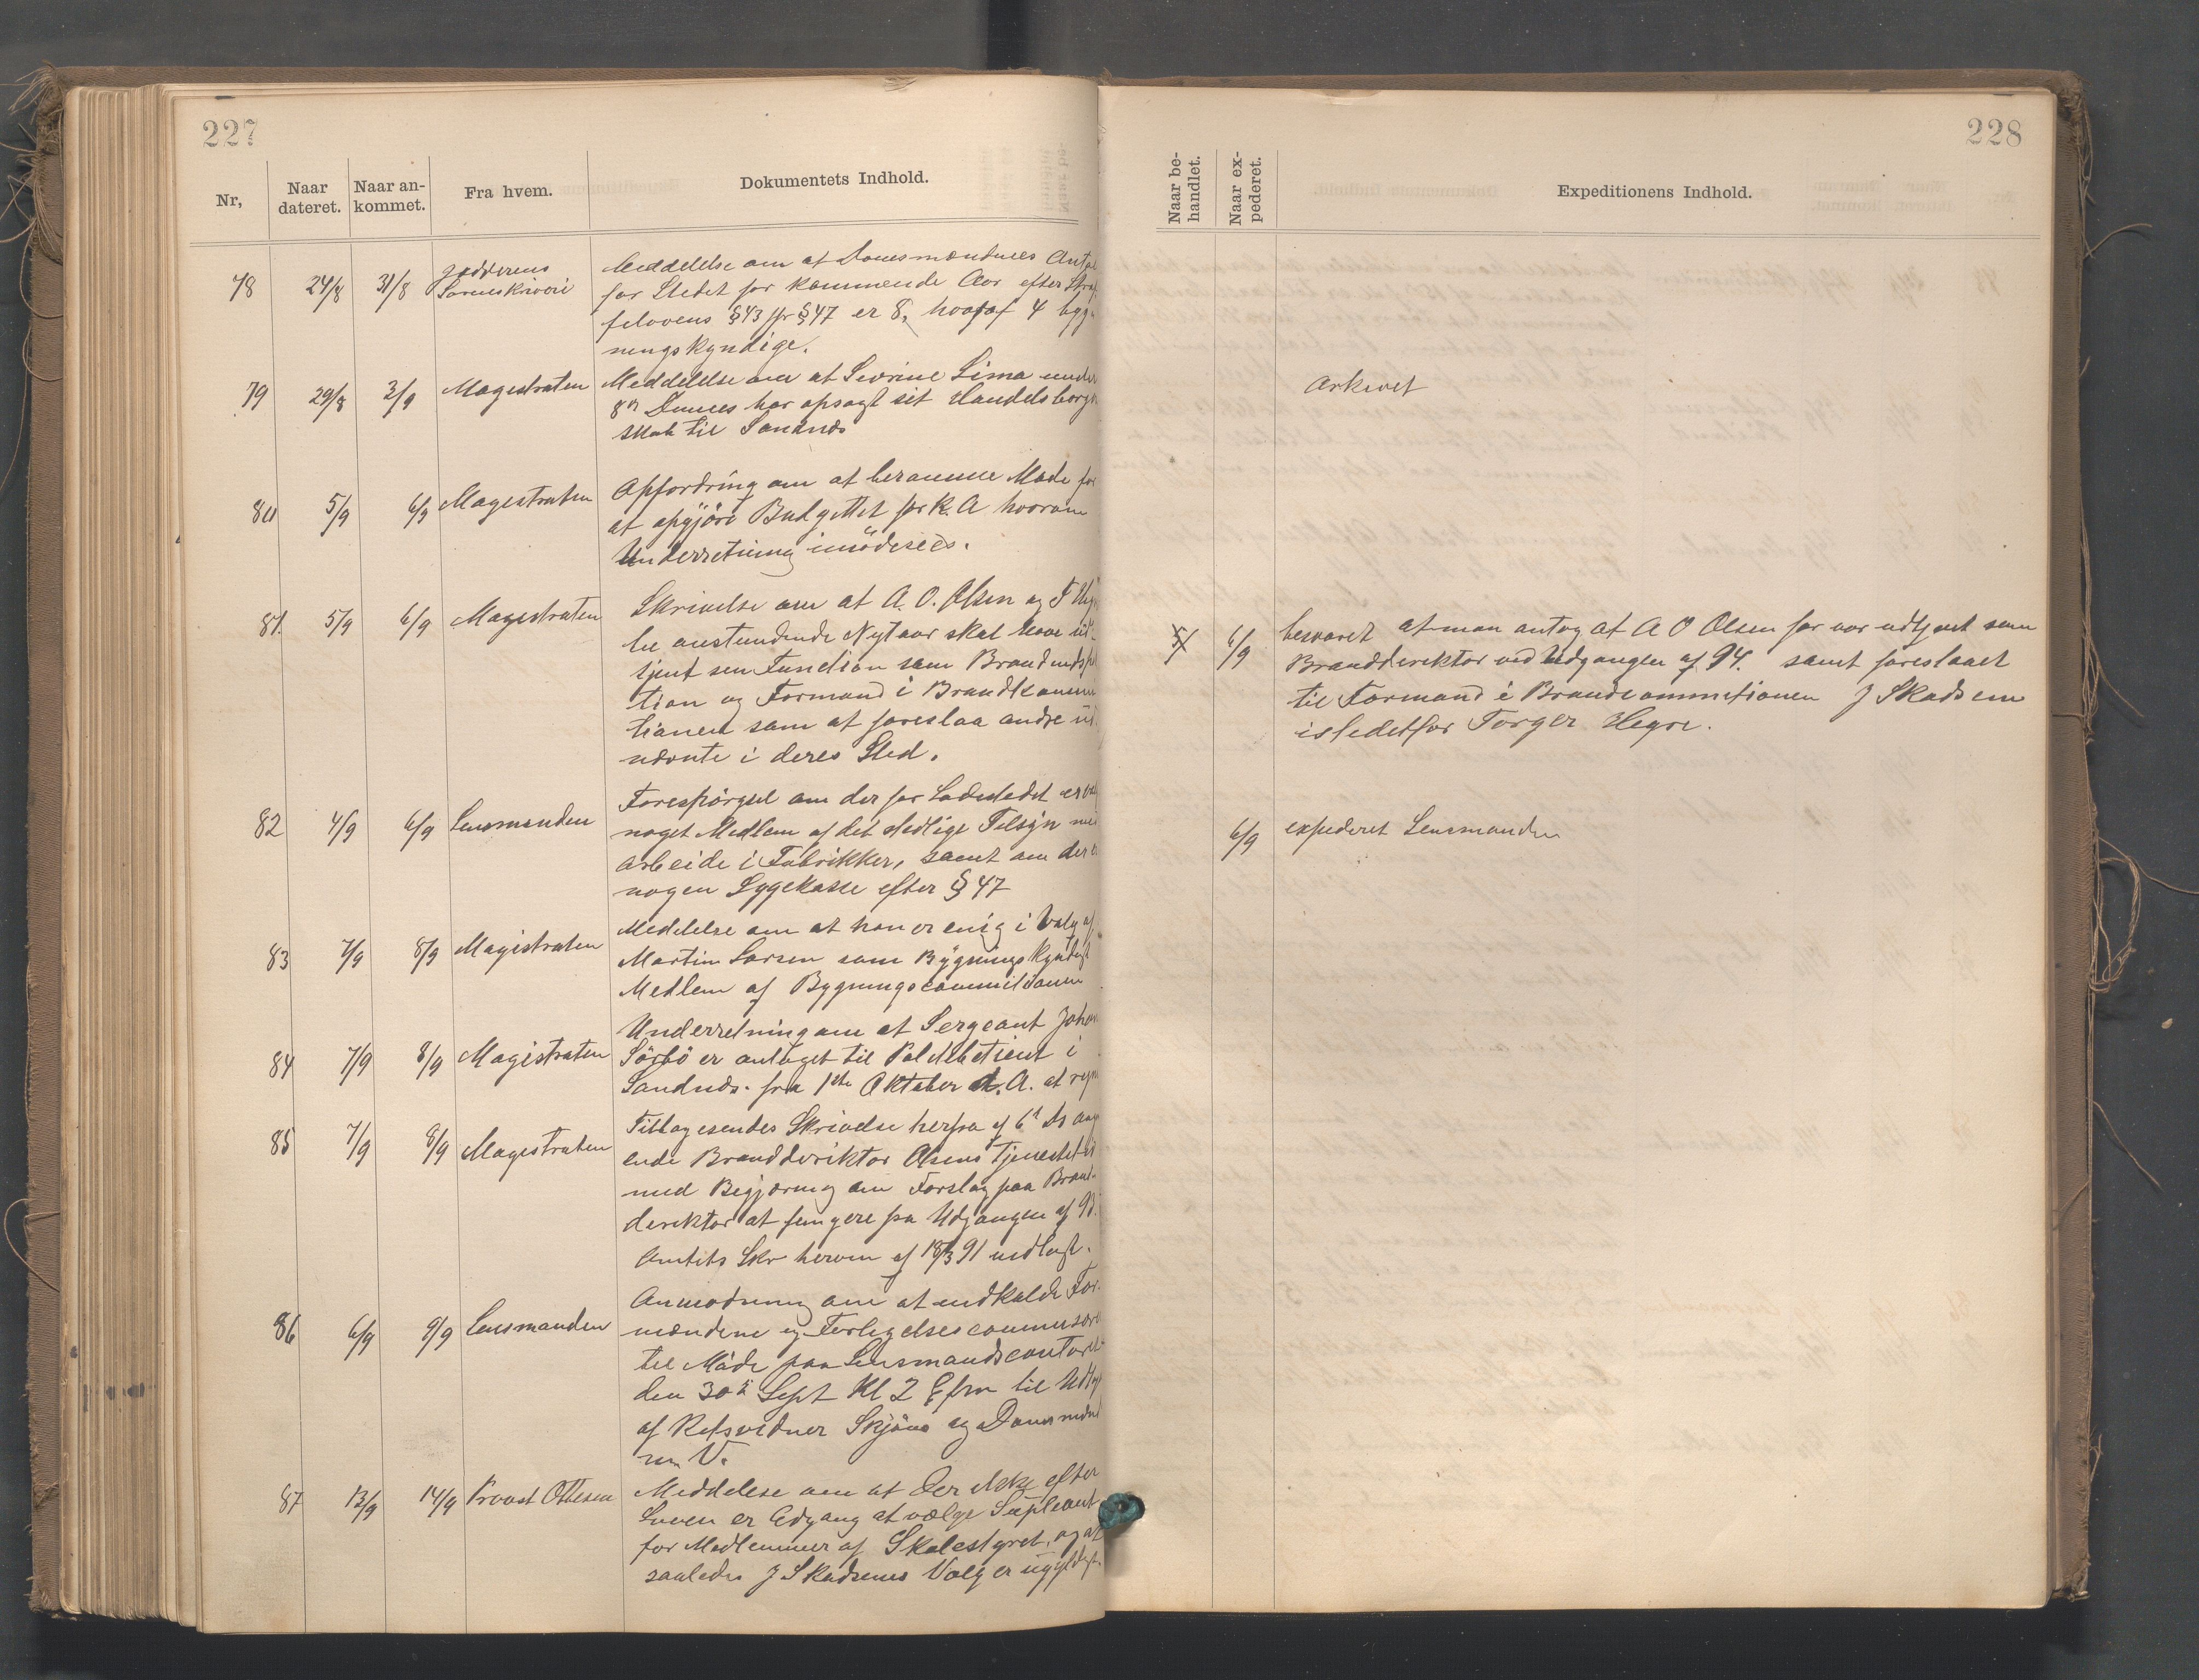 227
Nr,
Naar dateret.
Naar an-kommet.
Fra hvem.
Dokumentets Indhold.
78 24/8 31/8 Jædderens Sorenskriveri
Meddelelse om at Domsmændenes Antal
for Stedet for kommende Aar efter Straf
felovens § 43 jfr § 47 er 8, hvoraf 4 byg
ningskyndige.
79 29/8 2/9 Magistraten
Meddelelse om at Sevrine Lima under
8de Dennes har opsagt sit Handelsborger
skab til Sandnæs
80 5/9 6/9 Magistraten
Opfordring om at beramme Møde for
at opgjøre Budgettet for k. A hvorom
Underretning imødesees.
81. 5/9 6/9 Magistraten
Skrivelse om at A. O. Olsen og T Hegre
be anstundende Nytaar skal have ud-
tjent sin Function som Brand
tion og Formand i Brandkommi
tionen som at foreslaa andre ud
nævnte i deres Sted.
82 4/9 6/9 Lensmanden
Forespørgsel om der for Ladestedet er valg
noget Medlem af det stedlige Tilsyn med
Arbeide i Fabrikker, samt om der er
nogen Sygekasse efter § 47
83 7/9 8/9 Magistraten
Meddelelse om at han er enig i Valg af
Martin Larsen som Bygningskyndigt
Medlem af Bygningscommissionen
84 7/9 8/9 Magistraten
Underretning om at Sergeant Johan
Sørbø er antaget til Politibetjent i
Sandnæs fra 1ste Oktober d. A. at regne
85 7/9 8/9 Magistraten
Tilbagesendes Skrivelse herfra af 6te ds ang
ende Branddirektør Olsens Tjenestetid
med Begjæring om Forslag paa Brand-
direktør at fungere fra Udgangen af 93.
Amtets Skr herom af 18/3 91 vedlagt.
86 6/9 9/9 Lensmanden
Anmodning om at indkalde For-
mændene og Forligelsescommissære
til Møde paa Lensmandscontoret
den 30te Sept Kl 2 Efm til Udtag
af Retsvidner Skjøns og Domsmænd
m V.
87 13/9 14/9 Provst Ottesen
Meddelese om at der ikke efter
Loven er Adgang at vælge Supleant
for Medlemmer af Skolestyret, og at
saaledes J Skadsems Valg er ugyldigt.
228
Naar be-handlet.
Naar ex-pederet.
Expeditionens Indhold.
Arkivet
5/ 6/9 besvaret at man antog at A O Olsen før var udtjent som
Branddirektør ved Udgangen af 94. samt foreslaaet
til Formand i Brandcommitionen J Skadsem
istedetfor Torger Hegre.
6/9 expederet Lensmanden